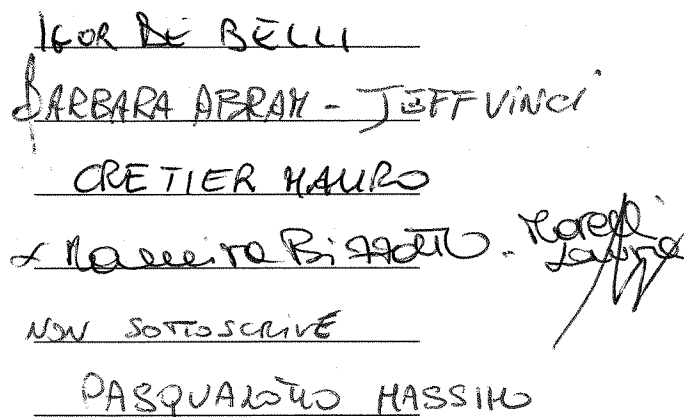 IGOR DE BELLI
BARBARA ABRAM - JEFF VINCI
CRETIER MAURO
Bizzotto - Morelli
NON SOTTOSCRIVE
PASQUALOTTO MASSIMO